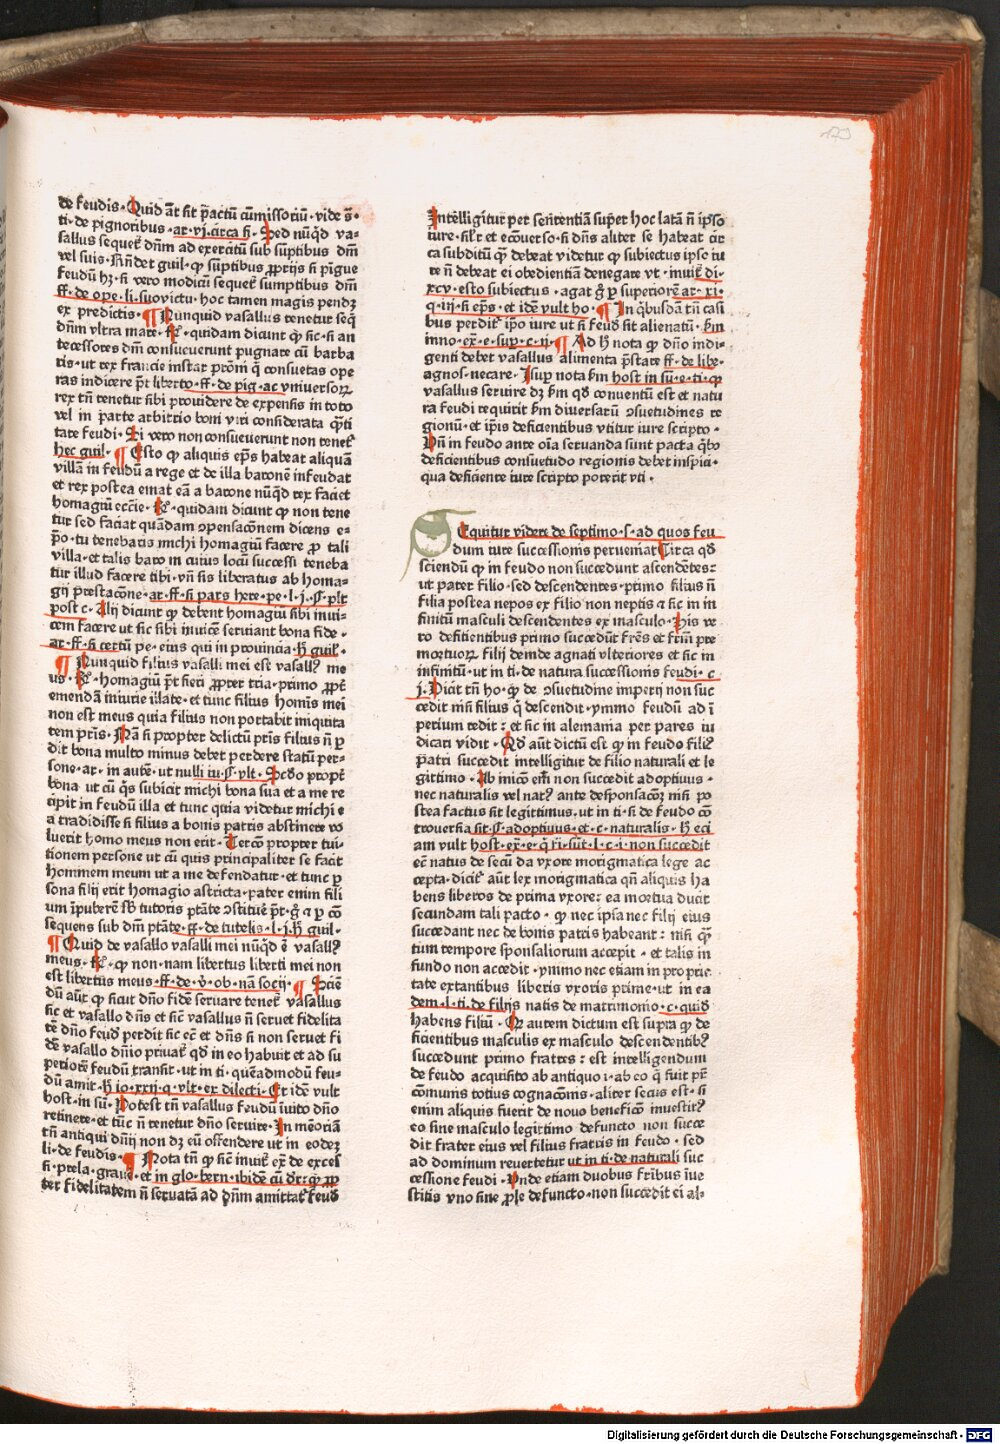 de feudis. Quid aūt sit p̄actū cūmissoriū. vide s̄.
ti. de pignoribus. ar. vj. circa fi. Sed nūqd va-
sallus sequet̉ dn̄m ad exercitū sub sūptibus dn̄i
vel suis. Rn̄det guil. ꝙ sūptibus ꝓprijs si pīgue
feudū hꝫ. si vero modicū sequet̉ sumptibus dn̄i
ff. de ope. li. suo victu. hoc tamen magis pendꝫ
ex predictis. ¶ Nunquid vasallus tenetur seq̄
dn̄m vltra mare. R̄. quidam dicunt ꝙ sic. si an
tecessores dn̄i consueuerunt pugnare cū barba
ris. ut rex francie instar prōm̄ ꝙ consuetas ope
ras indicere p̄t liberto. ff. de pig. ac. vniuersoꝝ
rex tn̄ tenetur sibi prouidere de expensis in toto
vel in parte arbitrio boni viri considerata q̄ti
tate feudi. Si vero non consueuerunt non tenet̉
hec guil. ¶ Esto ꝙ aliquis ep̄s habeat aliquā
villā in feudū a rege et de illa baronē infeudat
et rex postea emat eā a barone nūqd rex faciet
homagiū eccīe. R̄. quidam dicunt ꝙ non tene
tur sed faciat quādam ɔpensacōnem dicens e-
pō. tu tenebaris michi homagiū facere ꝓ tali
villa. et talis baro in cuius locū successi teneba
tur illud facere tibi. vn̄ sis liberatus ab homa-
gij prestacōne. ar. ff. si pars here. pe. l. j. §. plt
post c. Alij dicunt ꝙ debent homagiū sibi inui-
cem facere ut sic sibi inuicē seruiant bona fide.
ar. ff. si certū pe. eius qui in prouincia. h̄ guil.
¶ Nunquid filius vasalli mei est vasallꝰ me
us. R̄. homagiū p̄t fieri ꝓpter tria. primo ꝓpt̄
emendā iniurie illate. et tunc filius homīs mei
non est meus quia filius non portabit iniquita
tem pr̄is. Nā si propter delictū pr̄is filius n̄ p
dit bona multo minus debet perdere statū per-
sone. ar. in autē. ut nulli iu. §. vlt. Scdo propt̄
bona. ut cū q̄s subicit michi bona sua et a me re
cipit in feudū illa et tunc quia videtur michi e
a tradidisse si filius a bonis patris abstinere vo
luerit homo meus non erit. Tercō propter tui-
tionem persone ut cū quis principaliter se facit
hommem meum ut a me defendatur. et tunc p
sona filij erit homagio astricta. pater enim fili
um īpuberē sb tutoris ptāte ɔstituē p̄t. gͦ ⁊ p cō
sequens sub dn̄i ptāte. ff. de tutelis. l. j. h̄ guil.
¶ Quid de vasallo vasalli mei nūqd ē vasallꝰ
meus. R̄. ꝙ non. nam libertus liberti mei non
est libertus meus. ff. de v̄. ob. nā socij. ¶ Sciē
dū aūt ꝙ sicut dn̄o fidē seruare tenet̉ vasallus
sic et vasallo dn̄s et sic̄ vasallus n̄ seruet fidelita
tē dn̄o feudꝰ perdit sic eꝯ et dn̄s si non seruet fi
dē vasallo dn̄io priuat̉ qd̄ in eo habuit et ad su
periorē feudū transit. ut in ti. quēadmodū feu-
dū amit. h̄ io. xxij. q. vlt. ex dilecti. Et idē vult
host. in sū. Potest tn̄ vasallus feudū īuito dn̄o
retinere. et tūc n̄ tenetur dn̄o seruire. In mēoriā
tn̄ antiqui dn̄ij non dꝫ eū offendere ut in eodeꝫ
li. de feudis. ¶ Nota tn̄ ꝙ sic̄ inuit̉ ex̄. de exces̄
si. prela. graue. et in glo. bern. ibidē cū dr̄. ꝙ ꝓp
ter fidelitatem n̄ seruatā ad dn̄m amittat̉ feudꝰ
Intelligitur per sententiā super hoc latā n̄ ipso
iure. silr̄ et ecōuerso. si dn̄s aliter se habeat cir
ca subditū q̄ debeat videtur ꝙ subiectus ipso iu
re n̄ debeat ei obedientiā denegare vt. inuit̉ di-
xcv. esto subiectus. agat gͦ p superiorē ar. xi.
q. iij. si ep̄s. et idē vult ho. ¶ In q̄busdā tn̄ casi
bus perdit̉ ip̄o iure ut si feudꝰ sit alienatū. s̄m
inno. ex̄. e. sup. c. ij. ¶ Ad h̄ nota ꝙ dn̄o indi-
genti debet vasallus alimenta p̄stare ff. de libe-
agnos. necare. Isup nota s̄m host in sū. e. ti. ꝙ
vasallus seruire dꝫ s̄m qd̄ conuentū est et natu
ra feudi requirit s̄m diuersarū ɔsuetudines re
gionū. et ip̄is deficientibus vtitur iure scripto.
Vn̄ in feudo ante oīa seruanda sunt pacta q̄bꝰ
deficientibus consuetudo regionis debet inspici.
qua deficiente iure scripto poterit vti.
Sequitur videre de septimo. s. ad quos feu
dum iure successionis perueniat Circa qd̄
sciendū ꝙ in feudo non succedunt ascendētes:
ut pater filio. sed descendentes. primo filius n̄
filia postea nepos ex filio non neptis ⁊ sic in in
finitū masculi descendentes ex masculo. His ve
ro defitientibus primo succedūt fr̄es et fr̄m pre
mortuoꝝ filij deinde agnati vlteriores et sic in
infinitū. ut in ti. de natura successionis feudi. c
j. Dicit tn̄ ho. ꝙ de ɔsuetudine imperij non suc
cedit nisi filius q̄ descendit. ymmo feudū ad ī
perium redit: et sic in alemania per pares iu
dicari vidit. Qd̄ aūt dictū est ꝙ in feudo filiꝰ
patri succedit intelligitur de filio naturali et le
gittimo. Ab inicō em̄ non succedit adoptiuus.
nec naturalis vel natꝰ ante desponsacōꝫ nisi po
stea factus sit legitimus. ut in ti. si de feudo cō
trouersia sit. §. adoptiuus. et. c. naturalis. h̄ eci
am vult host. ex̄. e. q̄ fi. sūt. l. c. i. non succedit
eciā natus de secūda vxore morigmatica lege ac
cepta. dicit̉ aūt lex morigmatica qn̄ aliquis ha
bens liberos de prima vxore: ea mortua ducit
secundam tali pacto. ꝙ nec ipsa nec filij eius
succedant nec de bonis patris habeant: nisi q̄
tum tempore sponsaliorum accepit. et talis in
fundo non accedit. ymmo nec etiam in proprie
tate extantibus liberis vxoris prime. ut in ea
dem. l. ti. de filijs natis de matrimonio. c. quidꝫ
habens filiū. Qr̄ autem dictum est supra ꝙ de
ficientibus masculis ex masculo descendentibꝰ
succedunt primo fratres: est intelligendum
de feudo acquisito ab antiquo i. ab eo q̄ fuit pr̄
cōmunis totius cognacōnis. aliter secus est. si
enim aliquis fuerit de nouo beneficō inuestitꝰ
eo sine masculo legitimo defuncto non succe
dit frater eius vel filius fratris in feudo. sed
ad dominum reuertetur ut in ti. de naturali suc
cessione feudi. Vnde etiam duobus fr̄ibus īue
stitis vno sine ꝓle defuncto. non succedit ei al-
Digitalisierung gefördert durch die Deutsche Forschungsgemeinschaft - DFG